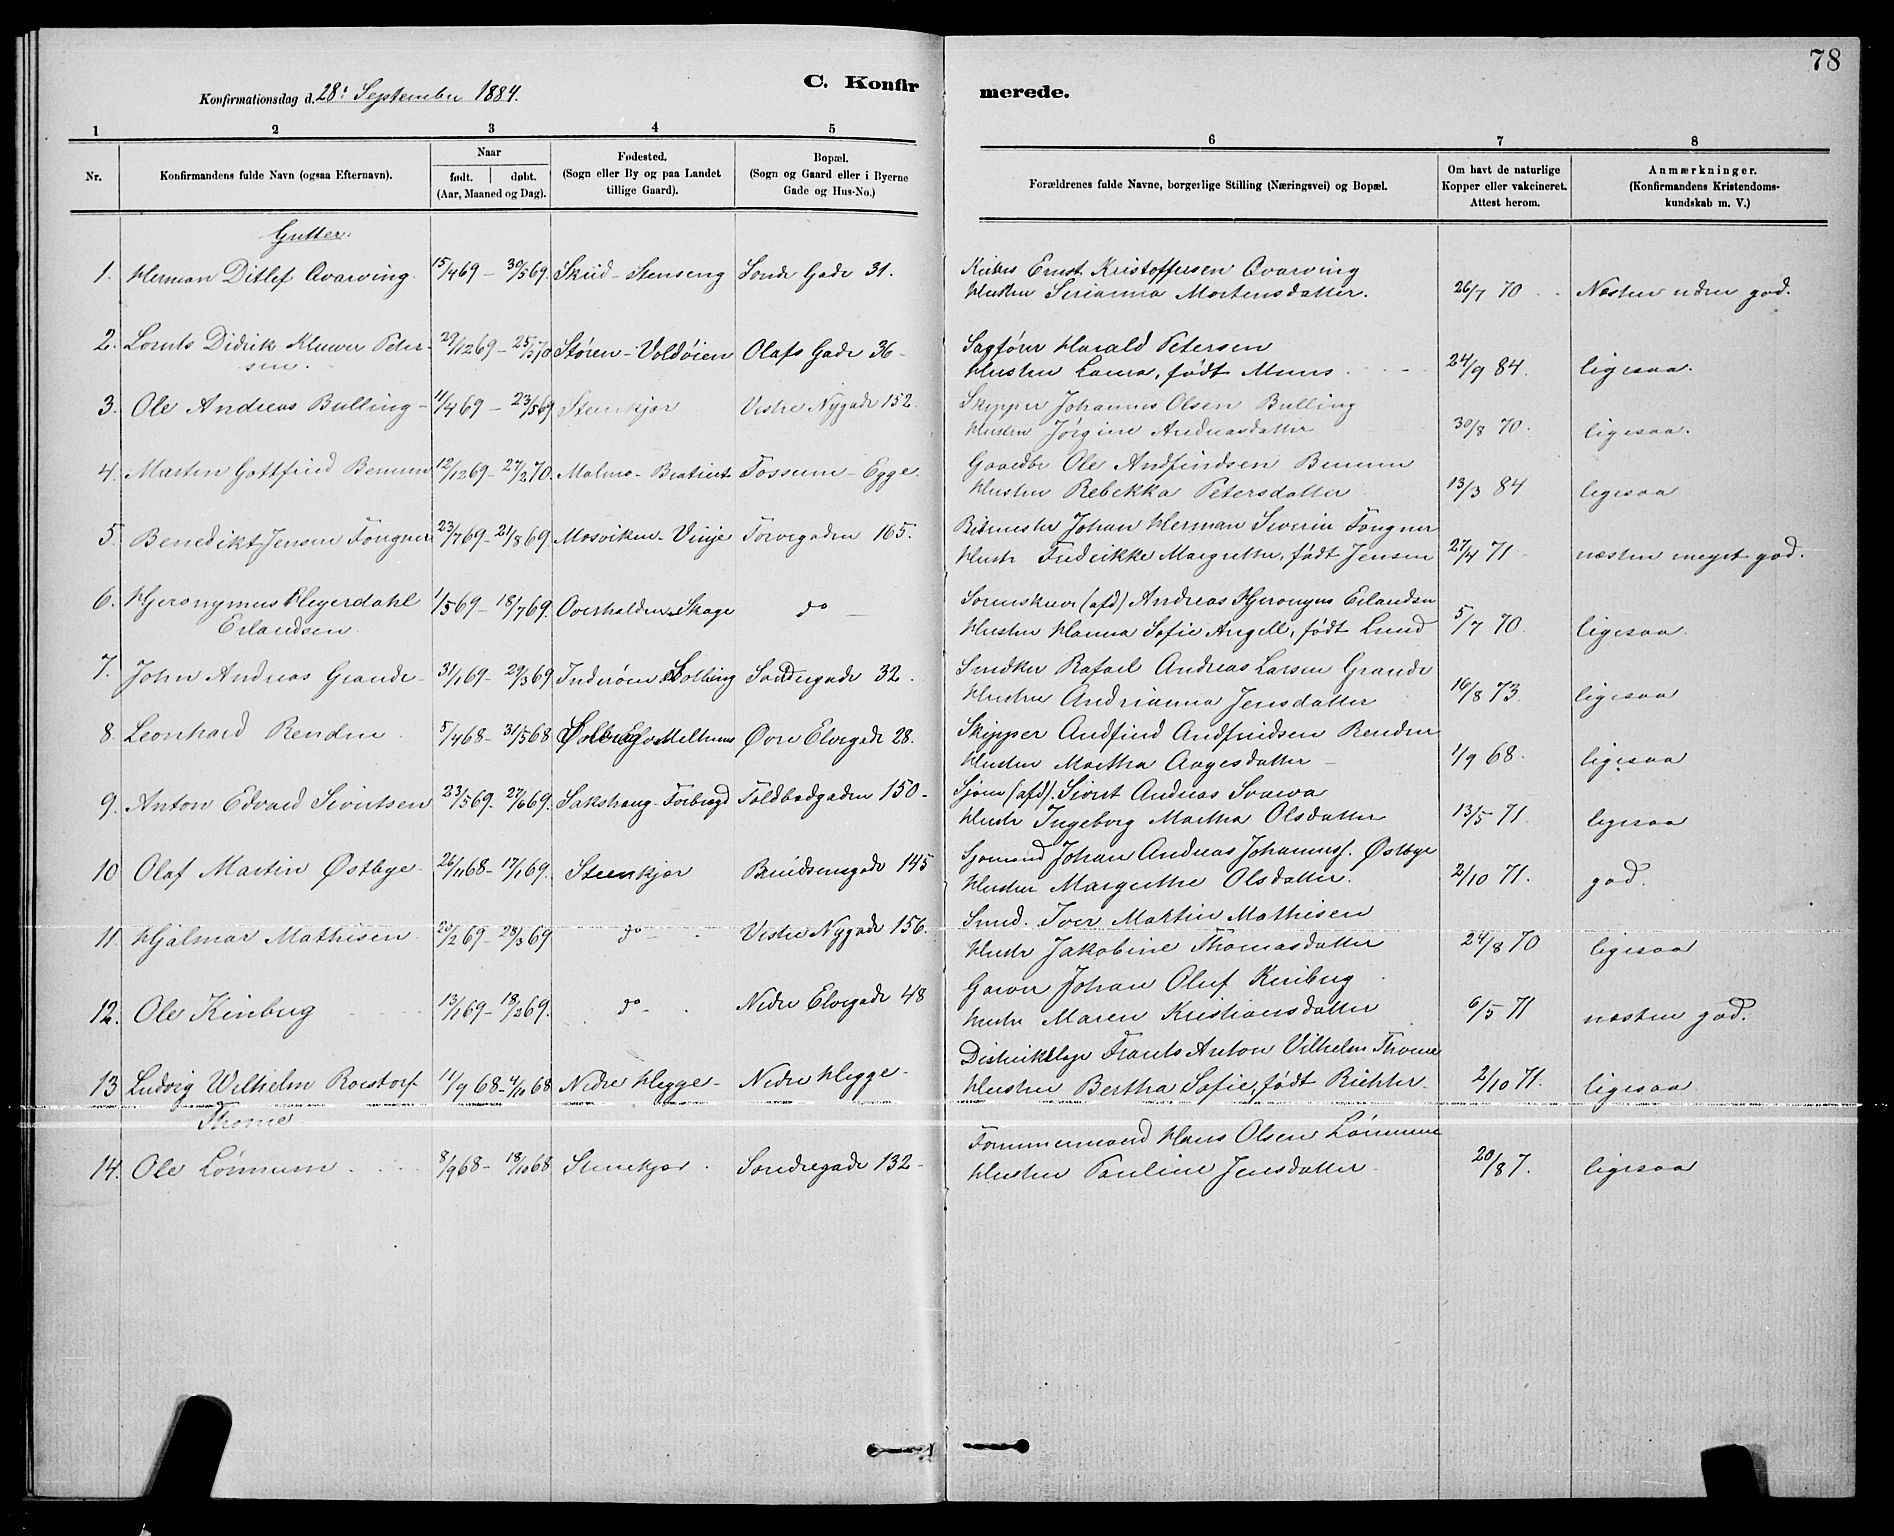 78
Konfirmationsdag d. 28: September 1884.
C. Konfir merede.
1 2 3 4 5 6 7 8
Nr.
Konfirmandens fulde Navn (ogsaa Efternavn).
Naar
født. døbt.
(Aar, Maaned og Dag).
Fødested.
(Sogn eller By og paa Landet
tillige Gaard).
Bopæl.
(Sogn og Gaard eller i Byerne
Gade og Hus-No.)
Forældrenes fulde Navne, borgerlige Stilling (Næringsvei) og Bopæl.
Om havt de naturlige
Kopper eller vakcineret.
Attest herom.
Anmærkninger.
(Konfirmandens Kristendoms-
kundskab m. V.)
Gutter.
1. Herman Ditlef Qvarving 15/4 69 - 30/5 69. Skiid - Stenseng Søndr Gade 31. Ernst Kristoffersen Qvarving
Hustru Serianna Mortensdatter. 26/7 70 Næsten uden god.
2. Lornts Didrik Kluwer Peter- 29/12 69 - 25/5 70 Støren - Voldøien Olafs Gade 36 - Sagfører Harald Petersen
sen. Hustru Laura, født Muus 24/9 84. ligesaa.
3. Ole Andreas Bulling - 11/4 69 - 23/5 69 Stenkjær Vestre Nygade 152. Skipper Johannes Olsen Bulling
Hustru Jørgine Andreasdatter 30/8 70. ligesaa.
4. Martin Gottfried Benum 12/12 69 - 27/2 70. Malmo - Fossum - Egge. Gaardbr Ole Andfindsen Benum
Hustru Rebekka Petersdatter 13/3 84 ligesaa
5. Benedikt Jensen Fongner 23/7 69 - 21/8 69. Mosviken - Vinje Torvegaden 165. Johan Herman Severin Fongner
Hustr Fredrikke Margrethe, født Jensen 27/4 71 næsten meget god.
6. Hjeronymus Heyerdahl 1/5 69 - 18/7 69. Overhalden - Skage do Sorenskriver (afd) Andreas Hjeronymus Erlandsen
Erlandsen Hustru Hanna Sofie Angell, født Lund 5/7 70. ligesaa.
7. John Andreas Grande - 31/1 69 - 29/3 69 Inderøen Søndregade 32. Snedker Rafael Andreas Larsen Grande
Hustru Andrianna Jensdatter 16/8 73. ligesaa
8. Leonhard Renden 5/4 68 - 31/5 68 Øvre Elvegade 28. Skipper Andfind Andfindsen Renden
Hustru Martha Aagesdatter - 1/9 68. ligesaa
9. Anton Edvard Sivertsen 23/5 69. - 27/6 69. Sakshaug - Forbregd Toldbodgaden 150 - (afd). Sivert Andreas
Hustr Ingeborg Martha Olsdatter 13/5 71. ligesaa
10 Olaf Martin Østbye - 26/11 68 - 17/1 69. Steenkjær 145 Sjømand Johan Andreas Johannes. Østbye
Hustru Margrethe Olsdatter. 2/10 71. god.
11 Hjalmar Mathisen 20/2 69 - 28/3 69 do Vestre Nygade 156. Smed. Iver Martin Mathisen
Hustr Jakobine Thomasdatter 24/8 70 ligesaa
12. Ole Kinberg 13/1 69 - 18/2 69. do - Nedre Elvegade 48 Garver Johan Oluf Kinberg
Hustr Maren Kristiansdatter 6/5 71 næsten god.
13 Ludvig Wilhelm Roestorf 11/9 68 - 4/10 68 Nedre Hegge - Nedre Hegge - Distriktslæge Frants Anton Vilhelm Thome
Thome Hustru Bertha Sofie, født Richter - 2/10 71. ligesaa
14. Ole Lønnum 8/9 68 - 18/10 68 Stenekjær. Søndregade 132 - Tømmermand Hans Olsen Lønnum
Hustru Pauline Jensdatter - 20/8 7. ligesaa